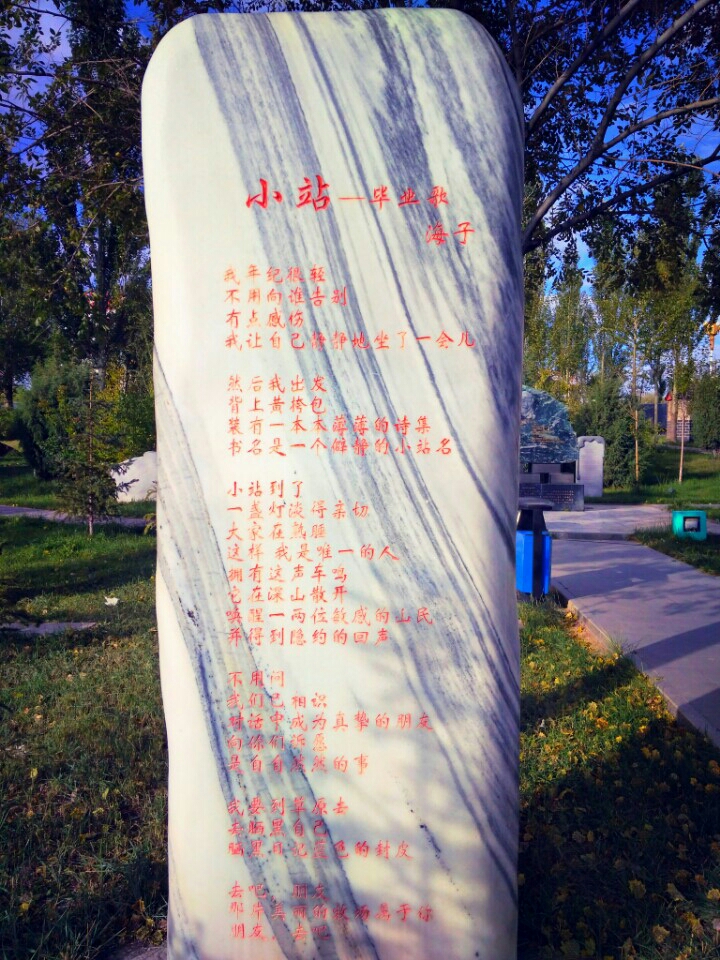 小站—毕业歌
海子
我年纪很轻
不用向谁告别
有点感伤
我让自己静静地坐了一会儿
然后我出发
背上黄挎包
装有一本本薄薄的诗集
书名是一个僻静的小站名
小站到了
一盏灯淡得亲切
大家在熟睡
这样 我是唯一的人
拥有这声车鸣
它在深山散开
唤醒一两位敏感的山民
并得到隐约的回声
不用问
我们已相识
对话中成为真挚的朋友
向你们诉愿
是自自然然的事
我要到草原去
去晒黑自己
晒黑日记蓝色的封皮
去吧，朋友
那片美丽的牧场属于你
朋友，去吧